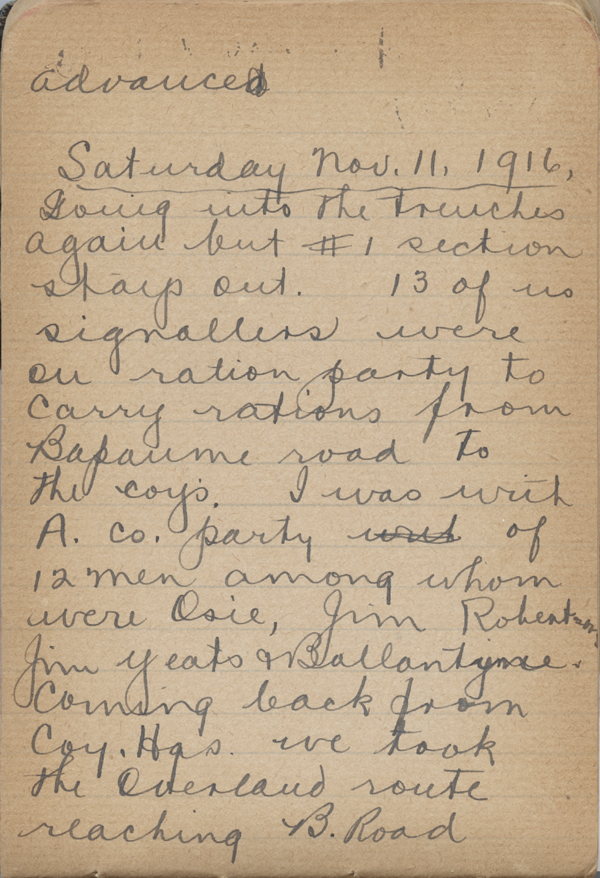 advanced
Saturday Nov. 11, 1916,
Going into the trenches
again but #1 section
stays out. 13 of us
signallers were
on ration party to
carry rations from
Bapaume road to
the coys. I was with
A. co. party of
12 men among whom
were Osie, Jim Robertson
Jim Yeats & Ballantyne.
Coming back from
Coy. Hqs. we took
the Overland route
reaching B. Road